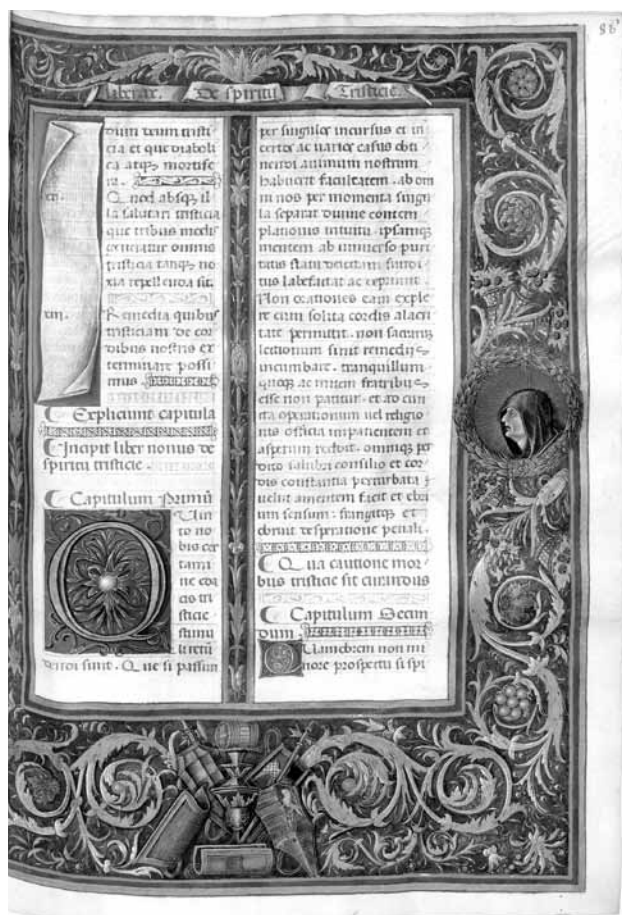 86
liber ix. De spiritu Tristicie.
dium deum tristi
cia et que diaboli
ca atqꝫ mortife
ra.
xii. Q uod absqꝫ il
la salutari tristicia
que tribus modis
omnis
tristicia tanqꝫ no
xia repellenda sit.
xiii. R emedia quibus
tristiciam de cor
dibus nostris ex
terminare possi
mus.
Expliciunt capitula
Incipit liber nonus de
spiritu tristicie.
Capitulum Primũ
Q Uin
to no
bis cer
tami
ne
tri
sticie
stimu
li
dendi sunt. Q ue si passim
per singulos incursus et in
certos ac varios casus obti
nendi animum nostrum
habuerit facultatem. ab om
ni nos per momenta singu
la separat divine contem
plationis intuitu. ipsamqꝫ
mentem ab universo puri
tatis statu deiectam fundi
tus labefactat ac deprimit.
Non orationes eam exple
re cum solita cordis alacri
tate permittit. non sacrarum
lectionum sinit remediis
incumbare. tranquillum
quoqꝫ ac mitem fratribus
esse non patitur. et ad cun
cta operationum vel religio
nis officia impatientem et
asperum reddit. omniqꝫ per
dito salubri consilio et cor
dis constantia perturbata
velut amentem facit et ebri
um sensum: frangitqꝫ et
obruit desperatione penali.
Q ua cautione mor
bus tristicie sit curandus
Capitulum Secun
dum.
Q Uamobrem non mi
nore prospectu si spi